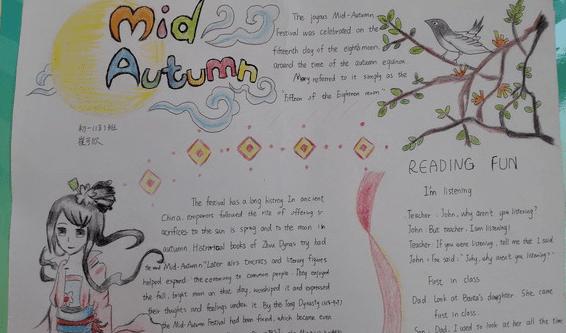 Mid
Autumn
The joyous Mid-Autumn
Festival was celebrated on the
fifteenth day of the eighth moon,
around the time of the autumn equinox.
Many referred to it simply as the
"Fifteen of the Eighteen moon."
初一(13)班
The festival has a long history. In ancient
China, emperors followed the rite of offering
sacrifices to the sun is spring and to the moon in
autumn. Historical books of Zhou Dynas try had
the word Mid-Autumn." Later aris tocrats and literary figures
helped expand the ceremony to common people. They enjoyed
the full, bright moon on that day, worshiped it and expressed
their thoughts and feelings under it. By the Tang Dynasty
the Mid-Autumn Festival had been fixed, which became even
READING FUN
I'm listening
Teacher: John, why aren't you listening?
John: But teacher, I am listening!
Teacher: If you were listening, tell me that I said.
John: You said: "John, why aren't you listening?"
First in class
Dad: Look at daughter. She came
first in class.
Son: Dad, I used to look at her all the time